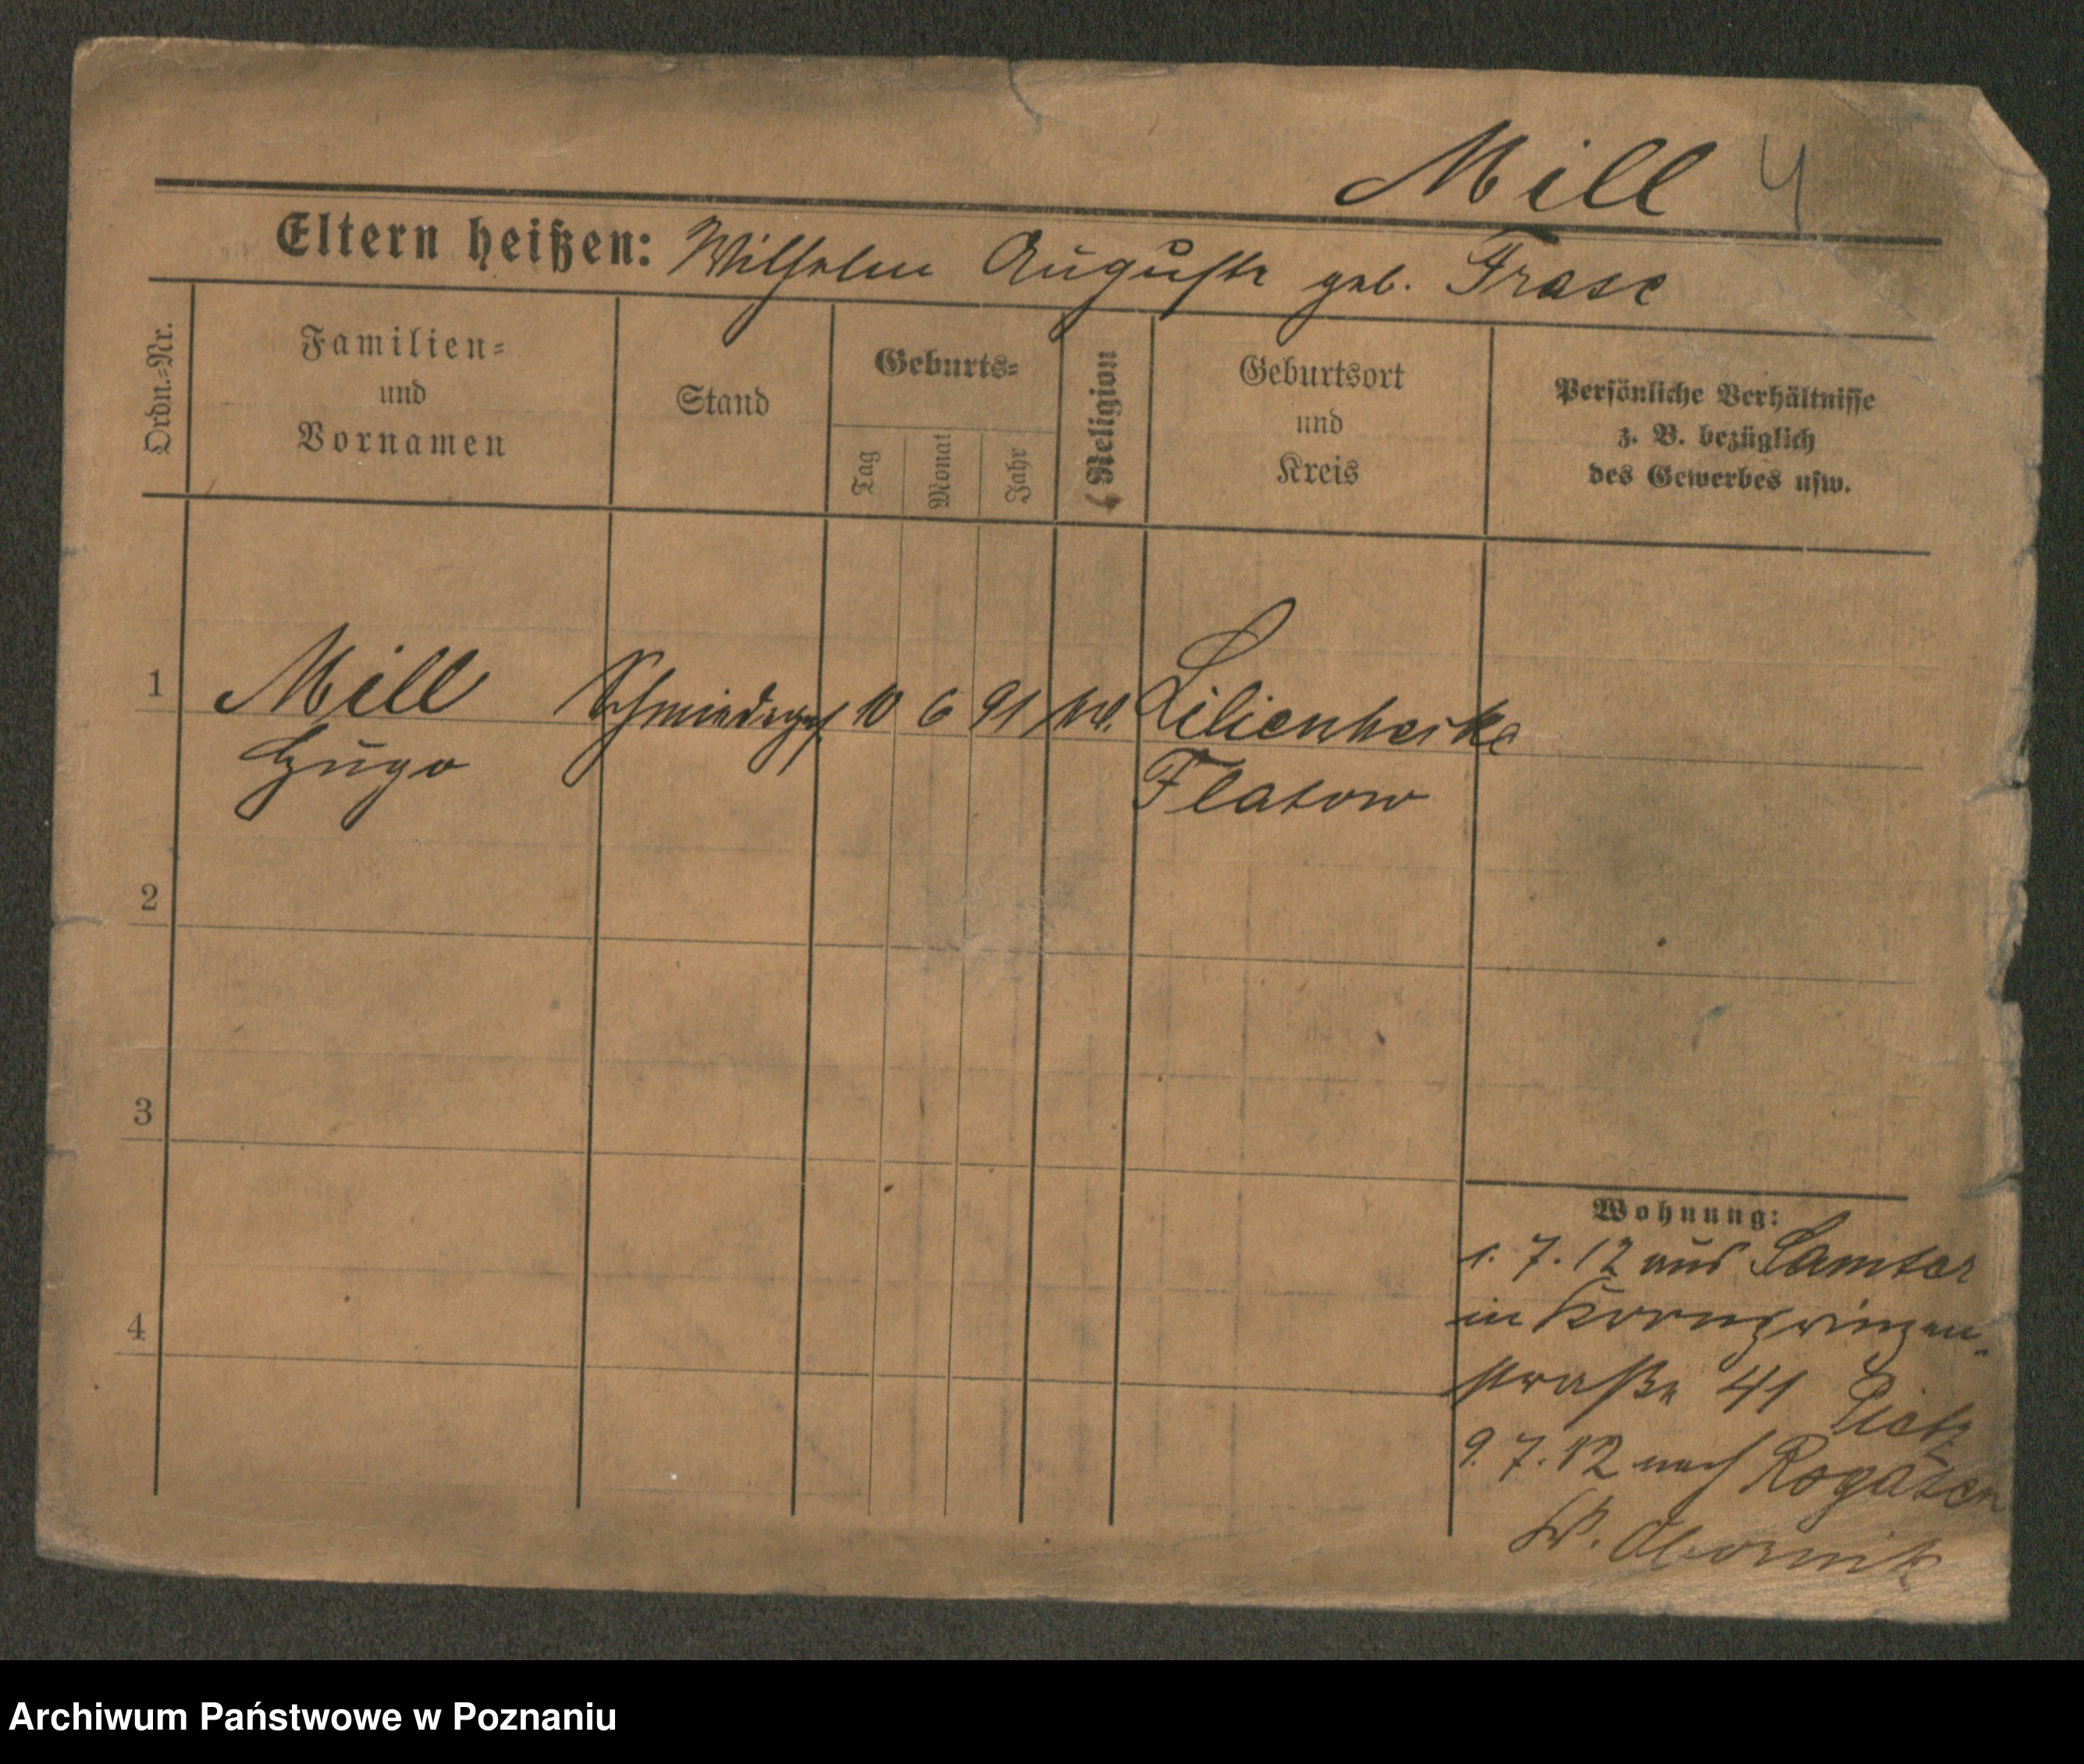 Mill 4
Eltern heißen: Wilhelm Auguste geb. Frase
Ordn.=Nr.
Familien=
und
Vornamen
Stand
Geburts=
Tag
Monat
Jahr
Religion
Geburtsort
und
Kreis
Persönliche Verhältnisse
z. B. bezüglich
des Gewerbes usw.
1 Mill Schmiedeges 10 6 91 ev. Lilienhecke
Hugo Flatow
2
3
4
Wohnung:
1. 7. 12 aus Samter
in Kronprinzen-
straße 41 Pietz
9. 7. 12 nach Rogasen
Kr. Obornik
Archiwum Państwowe w Poznaniu